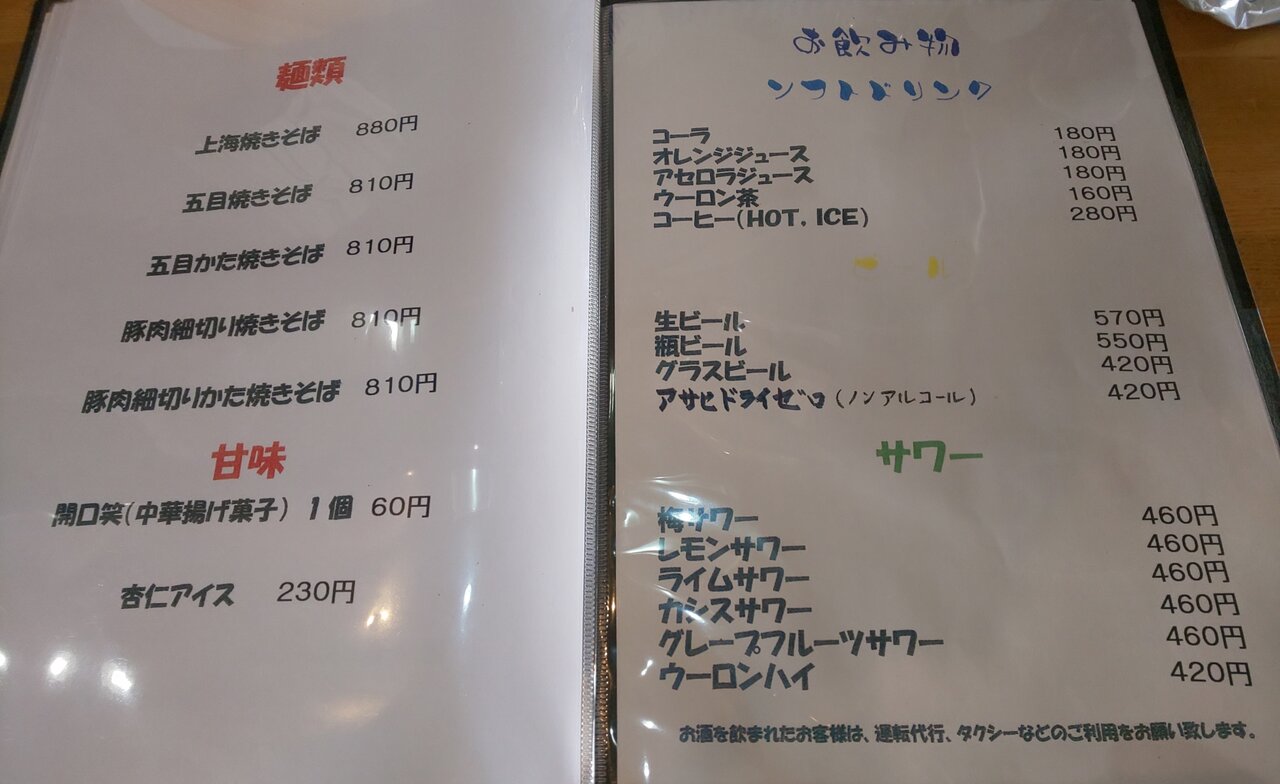 麺類
上海焼きそば 880円
五目焼きそば 810円
五目かた焼きそば 810円
豚肉細切り焼きそば 810円
豚肉細切りかた焼きそば 810円
甘味
開口笑(中華揚げ菓子) 1個 60円
杏仁アイス 230円
お飲み物
ソフトドリンク
コーラ 180円
オレンジジュース 180円
アセロラジュース 180円
ウーロン茶 160円
コーヒー(HOT, ICE) 280円
生ビール 570円
瓶ビール 550円
グラスビール 420円
アサヒドライゼロ(ノンアルコール) 420円
サワー
梅サワー 460円
レモンサワー 460円
ライムサワー 460円
カシスサワー 460円
グレープフルーツサワー 460円
ウーロンハイ 420円
お酒を飲まれたお客様は、運転代行、タクシーなどのご利用をお願い致します。